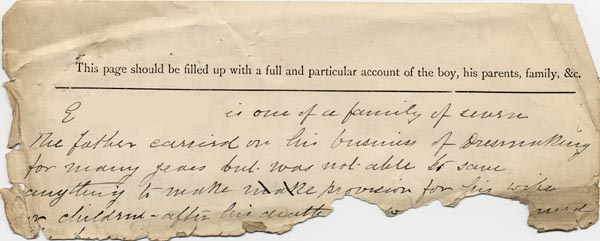 This page should be filled up with a full and particular account of the boy, his parents, family, &c.
E is one of a family of seven
The father carried on his business of Dresmaking
for many years but was not able to save
anything to make make provision for his wife
or children - after his death